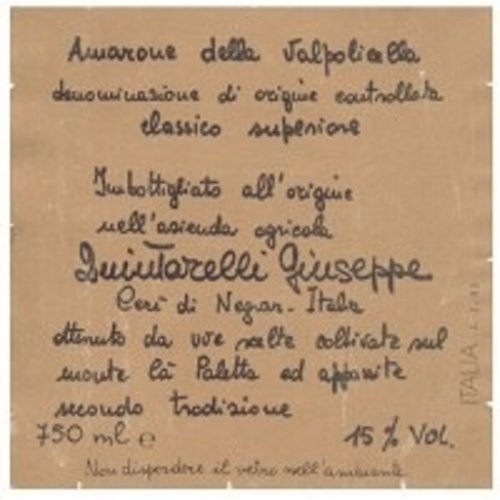 Amarone della Valpolicella
denominazione di origine controllata
classico superiore
Imbottigliato all'origine
nell'azienda agricola
Quintarelli Giuseppe
Cerè di Negrar - Italia
ottenuto da uve scelte coltivate sul
monte Cà Paletta ed appassite
secondo tradizione
750 ml e
15% VOL.
Non disperdere il vetro nell'ambiente
ITALIA